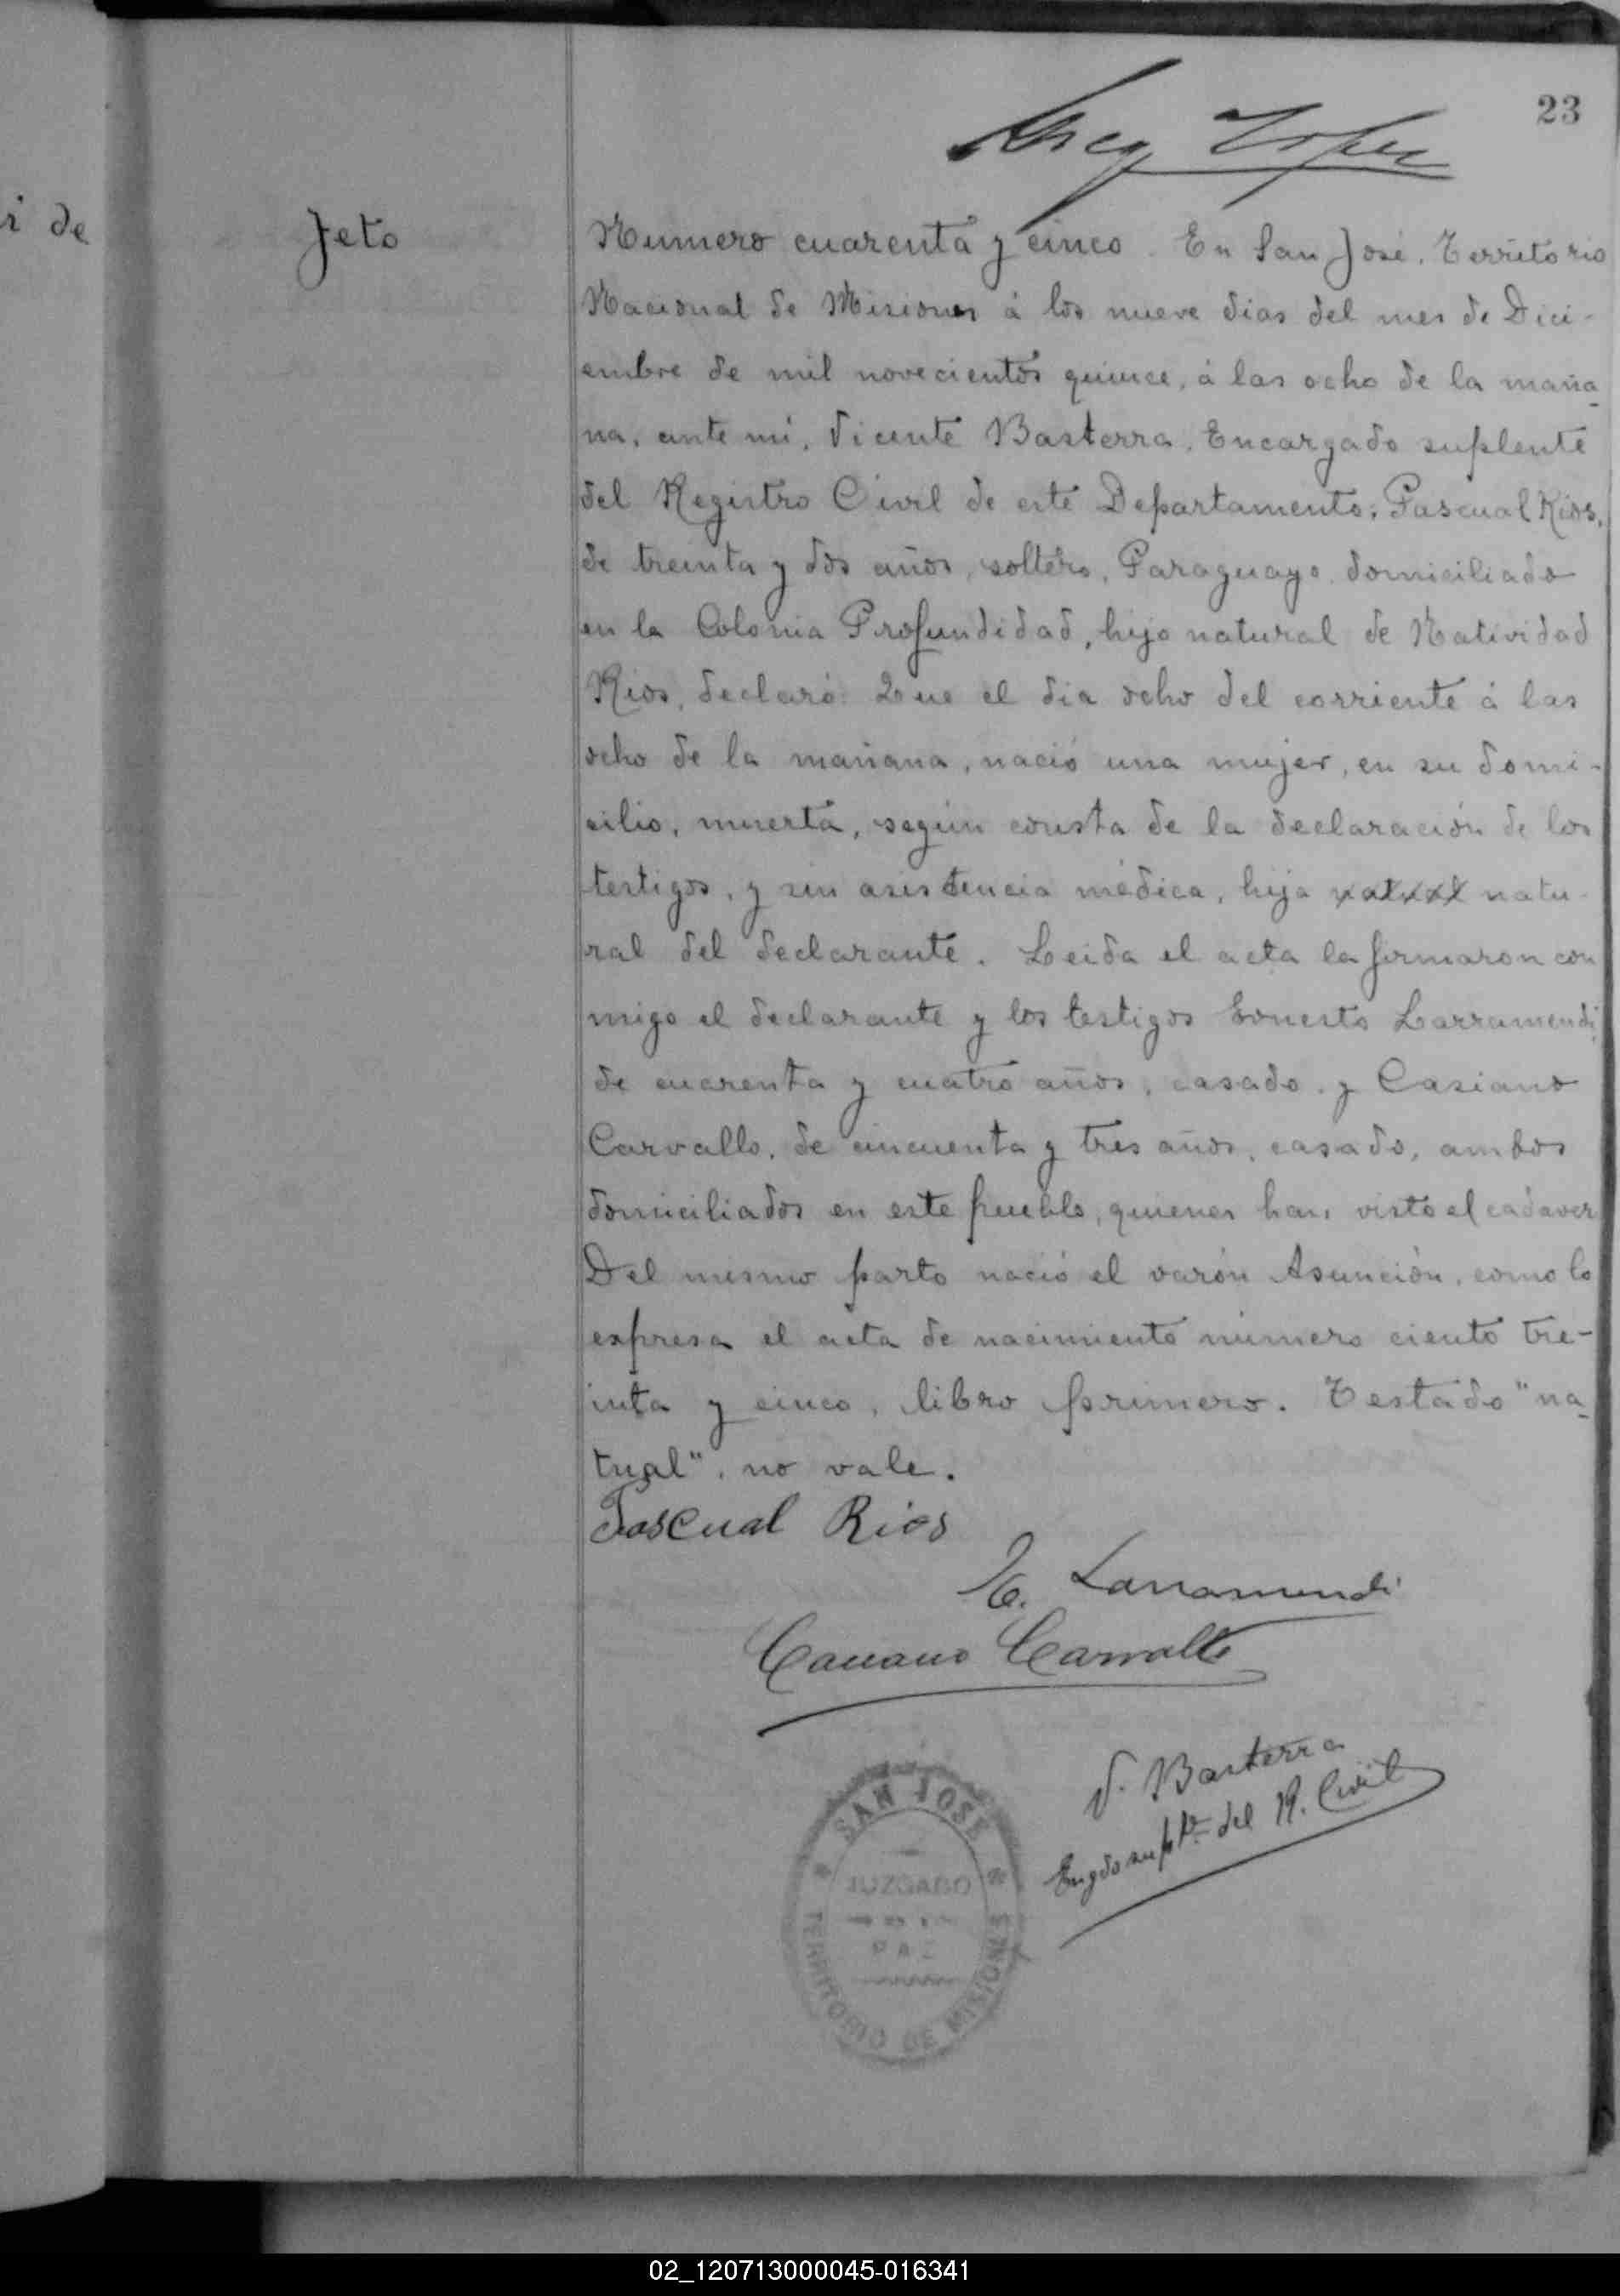 23
i de
Feto
Numero cuarenta y cinco. En San José, Territorio
Nacional de Misiones á los nueve dias del mes de Dici-
embre de mil novecientos quince, á las ocho de la maña-
na, ante mi, Vicente Basterra, Encargado suplente
del Registro Civil de este Departamento; Pascual Rios,
de treinta y dos años, soltero, Paraguayo, domiciliado
en la Colonia Profundidad, hijo natural de Natividad
Rios, declaró: Que el dia ocho del corriente á las
ocho de la mañana, nació una mujer, en su domi-
cilio, muerta, según consta de la declaración de los
testigos, y sin asistencia médica, hija natu-
ral del declarante. Leida el acta la firmaron con
migo el declarante y los testigos Ernesto Larramendi,
de cuarenta y cuatro años, casado y Casiano
Carvallo, de cincuenta y tres años, casado, ambos
domiciliados en este pueblo, quienes han visto el cadaver
Del mismo parto nació el varón Asunción, como lo
expresa el acta de nacimiento número ciento tre-
inta y cinco, libro primero. Testado "na-
tual", no vale.
Pascual Rios
E. Larramendi
Casiano Carvallo
V. Basterra
Engdo suplte del R. Civil
SAN JOSE
JUZGADO
PAZ
TERRITORIO DE MISIONES
02_120713000045-016341